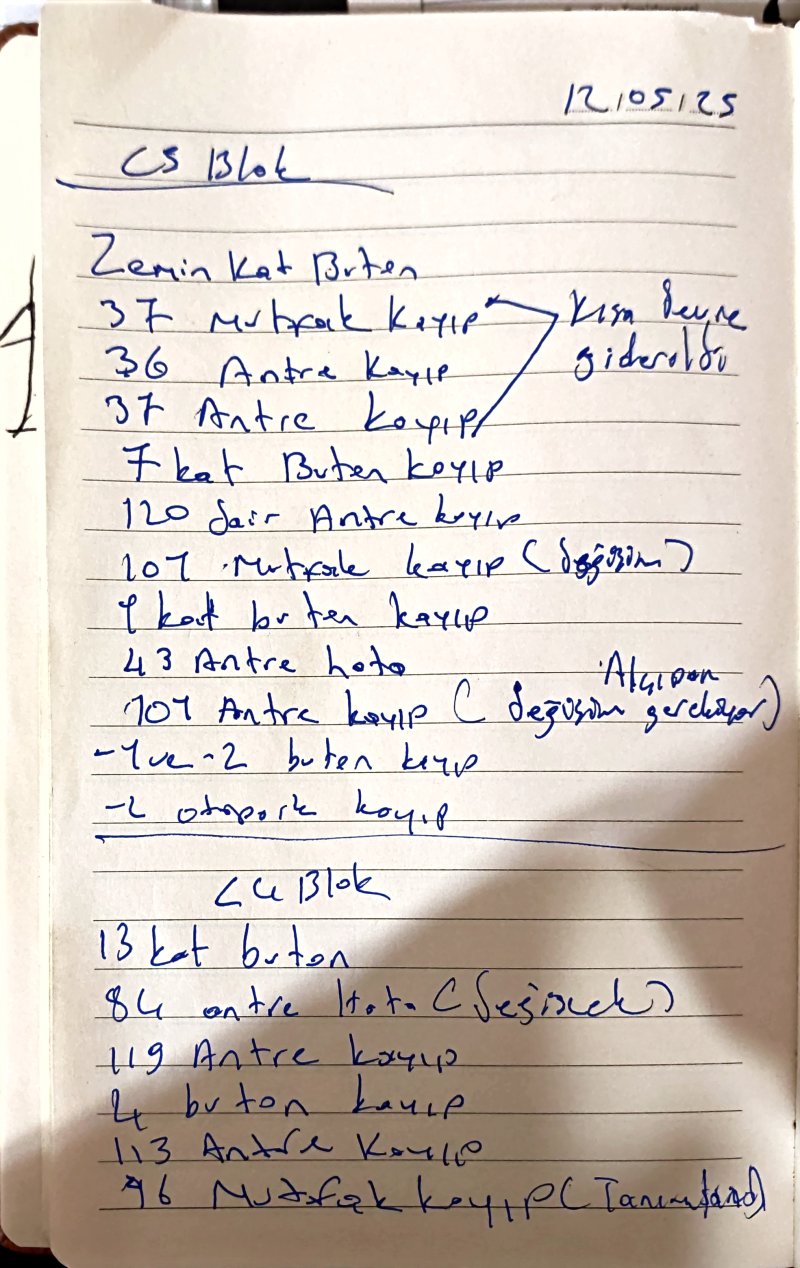 12/05/25
C5 Blok
Zemin Kat Buten
37 Mutfak Kayıp
Kısa devre
giderildi
36 Antre Kayıp
37 Antre kayıp
7 kat Buten kayıp
120 dair Antre kayıp
107 Mutfak kayıp (değişim)
9 kat buten kayıp
43 Antre hata
107 Antre kayıp (Alçıpan değişim gerekiyor)
-1 ve -2 buten kayıp
-2 otopark kayıp
C4 Blok
13 kat buton
84 antre Hata (değişcek)
119 Antre kayıp
4 buton kayıp
113 Antre Kayıp
96 Mutfak kayıp (Tanımlandı)